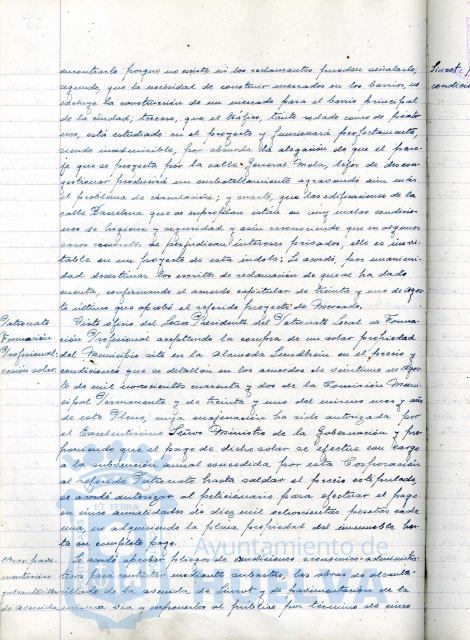 encontrarlo porque no existe ni los reclamantes pueden señalarlo;
segundo, que la necesidad de construir mercados en los barrios, no
excluye la construcción de un mercado para el barrio principal
de la ciudad; tercero, que el tráfico, tanto rodado como de peato-
nes, está estudiado en el proyecto y funcionará perfectamente,
siendo inadmisible, por absurda la alegación de que el para-
je que se proyecta por la calle General Mola, lejos de descon-
gestionar producirá un embotellamiento agravando aún más
el problema de circulación; y cuarto, que las edificaciones de la
calle Barcelona que se expropien están en muy malas condicio-
nes de higiene y seguridad y aún reconociendo que en algunos
casos concretos se perjudican intereses privados, ello es inevi-
table en un proyecto de esta índole; Se acordó, por unanimi-
dad desestimar los escritos de reclamación de que se ha dado
cuenta, confirmando el acuerdo capitular de treinta y uno de agos-
to último que aprobó el referido proyecto de Mercado.
Patronato
Formación
Profesional:
cesión solar.
Visto oficio del Señor Presidente del Patronato Local de Forma-
ción Profesional aceptando la compra de un solar propiedad
del Municipio sito en la Alameda Sundheim en el precio y
condiciones que se detallan en los acuerdos de veintiuno de Agos-
to de mil novecientos cuarenta y dos de la Comisión Muni-
cipal Permanente y de treinta y uno del mismo mes y año
de este Pleno, cuya enajenación ha sido autorizada por
el Excelentísimo Señor Ministro de la Gobernación y pro-
poniendo que el pago de dicho solar se efectúe con cargo
a la subvención anual concedida por esta Corporación
al referido Patronato hasta saldar el precio estipulado,
se acordó autorizar al peticionario para efectuar el pago
en cinco anualidades de diez mil ochocientas pesetas cada
una, no adquiriendo la plena propiedad del inmueble has-
ta su completo pago.
Se acordó aprobar pliegos de condiciones económico-administra-
tivas para mediante subastas, las obras de alcanta-
rillado de la avenida de y de pavimentación de la
misma vía y exponerlos al público por término de cinco
condicio
Ayuntamiento de
HUELVA